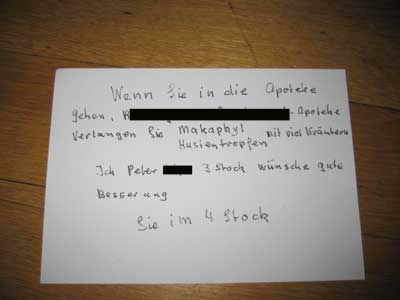 Wenn Sie in die Apoteke
gehen, K Apoteke
Verlangen Sie Makaphyl mit viel Kräutern
Hustentropfen
Ich Peter 3 Stock wünsche gute
Besserung
Sie im 4 Stock